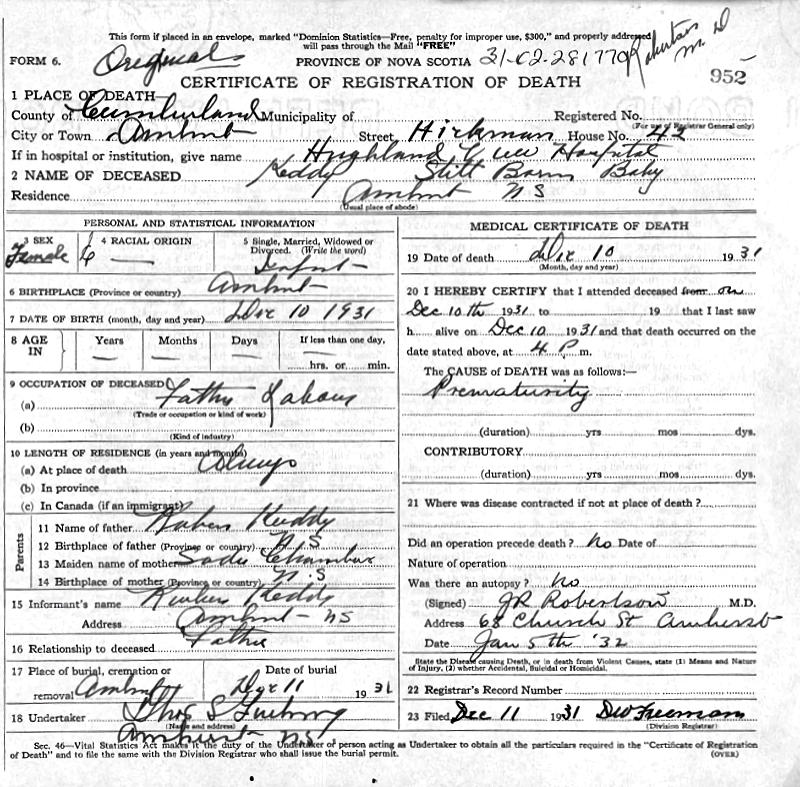 This form if placed in an envelope, marked "Dominion Statistics—Free, penalty for improper use, $300," and properly addressed
will pass through the Mail "FREE"
Robertson M. D
FORM 6. Original PROVINCE OF NOVA SCOTIA 31-02-281770
CERTIFICATE OF REGISTRATION OF DEATH 952
1 PLACE OF DEATH—
County of Cumberland Municipality of Registered No.
(For use of Registrar General only)
City or Town Amherst Street Hickman House No. 42
If in hospital or institution, give name Highland View Hospital
2 NAME OF DECEASED Keddy Still Born Baby
Residence Amherst NS
(Usual place of abode)
PERSONAL AND STATISTICAL INFORMATION
3 SEX 4 RACIAL ORIGIN 5 Single, Married, Widowed or
Divorced. (Write the word)
Female — Infant
6 BIRTHPLACE (Province or country) Amherst
7 DATE OF BIRTH (month, day and year) Dec 10 1931
8 AGE IN Years Months Days If less than one day,
— — — —
hrs. or min.
9 OCCUPATION OF DECEASED
(a) Father Labour
(Trade or occupation or kind of work)
(b)
(Kind of industry)
10 LENGTH OF RESIDENCE (in years and months)
(a) At place of death Always
(b) In province
(c) In Canada (if an immigrant)
Parents
11 Name of father Ruben Keddy
12 Birthplace of father (Province or country) N S
13 Maiden name of mother Sadie Chambers
14 Birthplace of mother (Province or country) N.S
15 Informant's name Reuben Keddy
Address Amherst NS
16 Relationship to deceased Father
17 Place of burial, cremation or Date of burial
removal Amherst Dec 11 1931
18 Undertaker Thos S
(Name and address)
Amherst NS
MEDICAL CERTIFICATE OF DEATH
19 Date of death Dec 10 1931
(Month, day and year)
20 I HEREBY CERTIFY that I attended deceased from on
Dec 10th 1931 to 19 that I last saw
h alive on Dec 10 1931 and that death occurred on
date stated above, at 4 P. m.
The CAUSE of DEATH was as follows:—
Prematurity
(duration) yrs mos dys.
CONTRIBUTORY
(duration) yrs mos dys.
21 Where was disease contracted if not at place of death?
Did an operation precede death? No Date of
Nature of operation
Was there an autopsy? No
(Signed) JR Robertson M.D.
Address 68 Church St Amherst
Date Jan 5th '32
State the Disease causing Death, or in death from Violent Causes, state (1) Means and Nature
of Injury, (2) whether Accidental, Suicidal or Homicidal.
22 Registrar's Record Number
23 Filed Dec 11 1931 DW Freeman
(Division Registrar)
Sec. 46—Vital Statistics Act makes it the duty of the Undertaker or person acting as Undertaker to obtain all the particulars required in the "Certificate of Registration
of Death" and to file the same with the Division Registrar who shall issue the burial permit. (OVER)